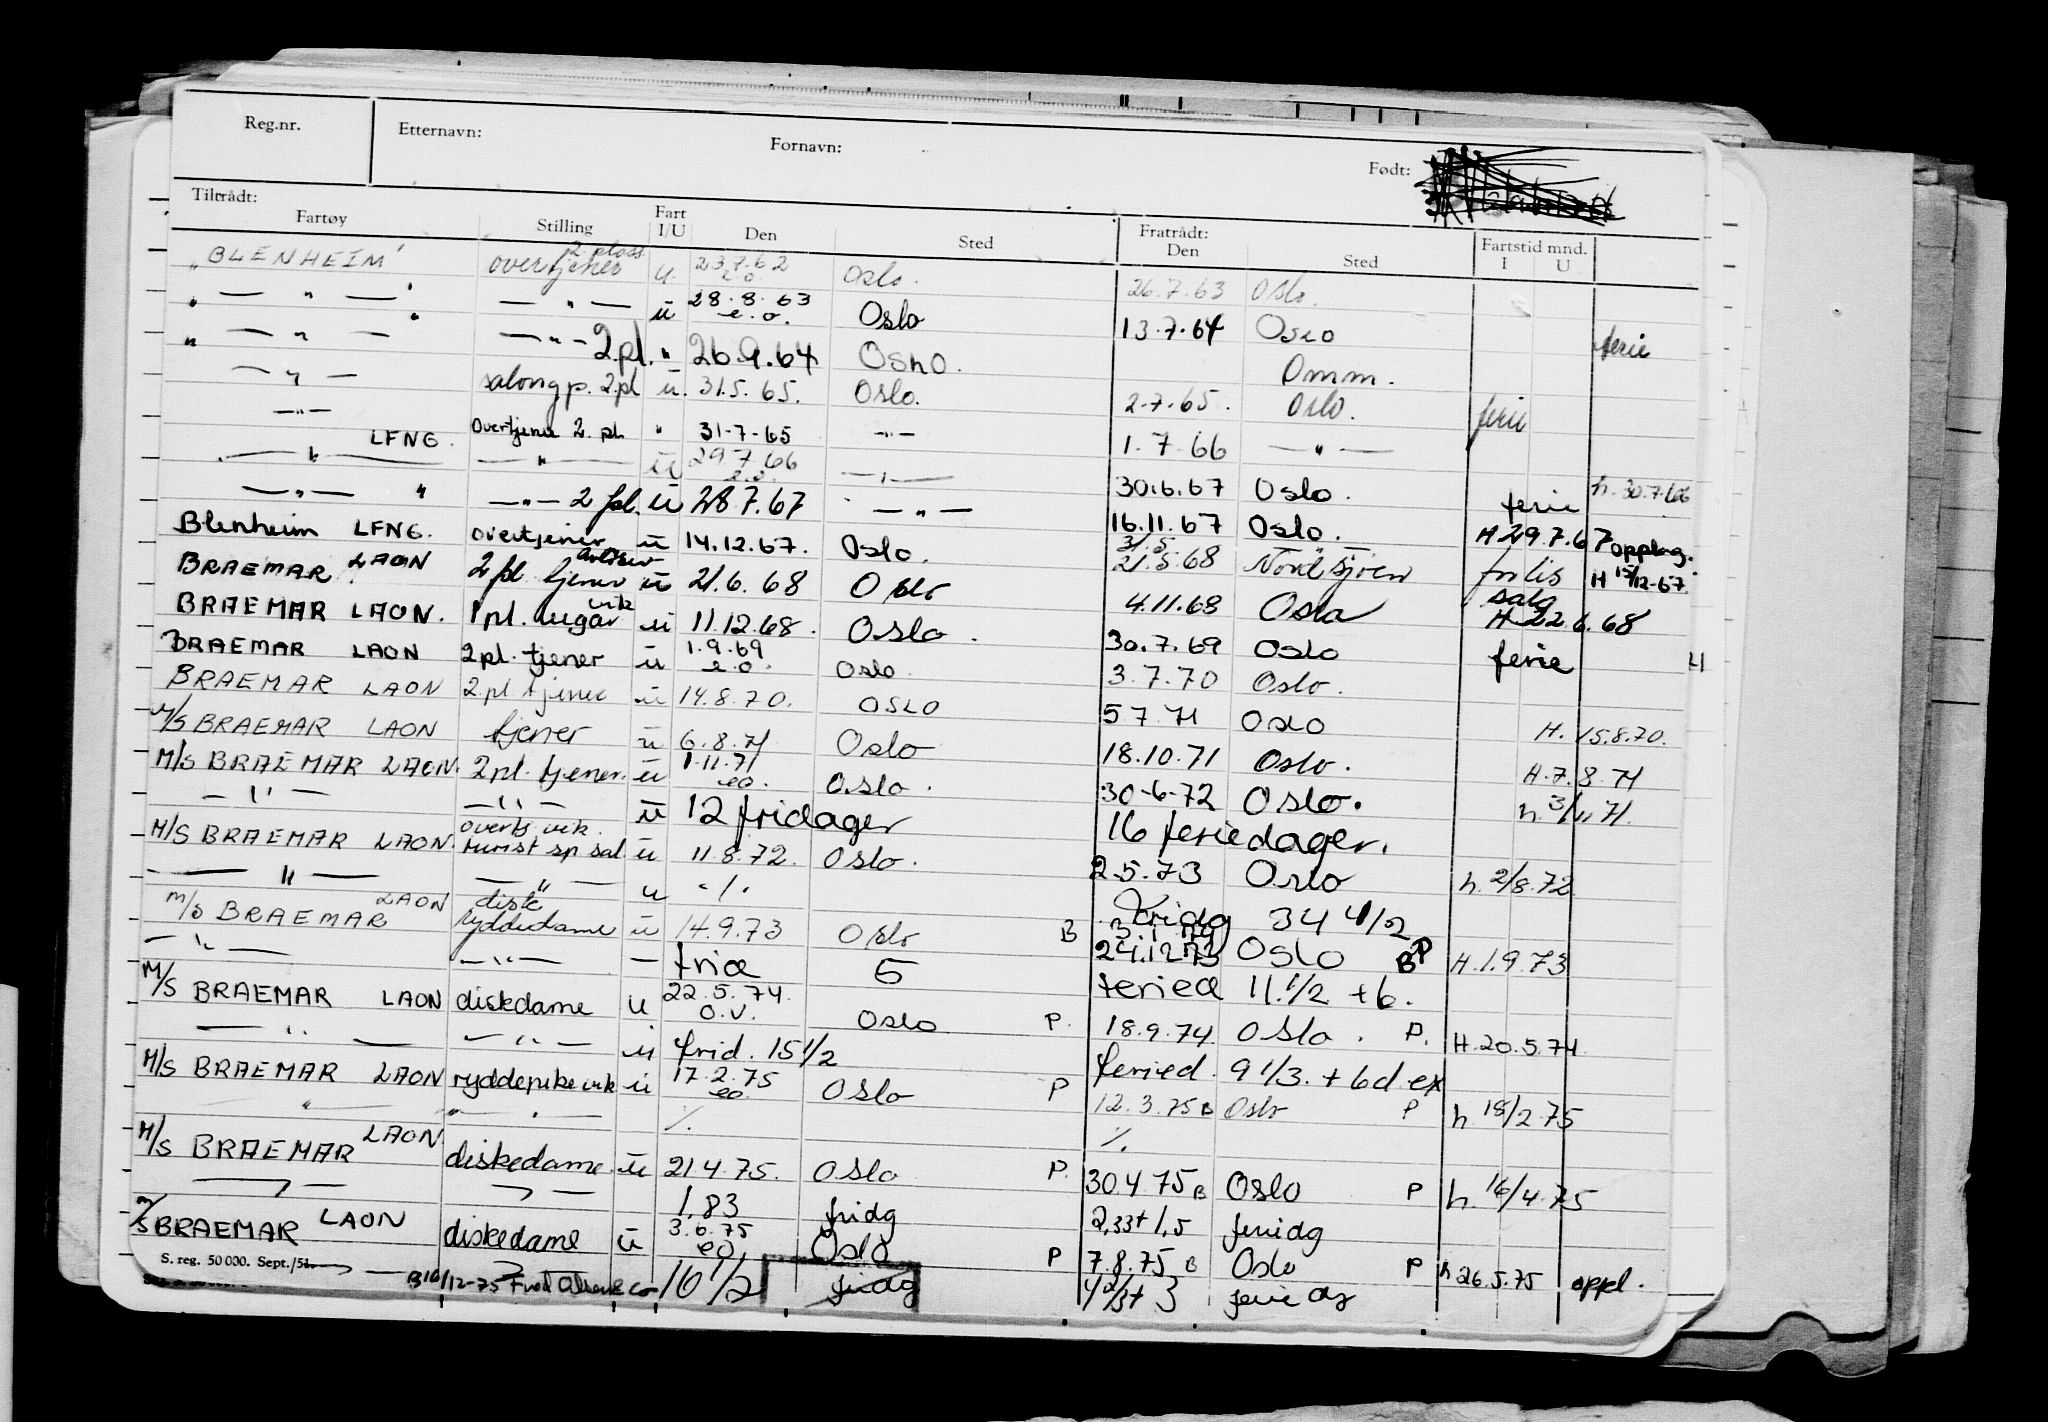 Reg.nr. Etternavn: Fornavn: Født:
Tiltrådt: Fratrådt:
Fartøy Stilling Fart I/U Den Sted Den Sted Fartstid mnd. I U
"BLENHEIM" overtjener 2 plass u. 23.7.62 e.o. Oslo. 26.7.63 Oslo.
" — " — " — " — u 28.8.63 e.o. Oslo 13.7.64 Oslo ferie
" — " — " — " — 2.pl. " 26.9.64 Oslo. Omm.
— " — salongp. 2.pl u. 31.5.65. Oslo. 2.7.65. Oslo. ferie
— " — Overtjener 2. pl " 31-7-65 — " — 1.7.66 — " —
— " — LFNG. — " — u 29.7.66 e.o. — " — 30.6.67 Oslo. ferie h. 30.7.66
— " — " — " — 2 pl. u 28.7.67 — " — 16.11.67 Oslo. H 29.7.67 opplag.
Blenheim LFNG. overtjener u 14.12.67. Oslo. 31/5 21.5.68 Nordsjøen forlis H 15/12-67
BRAEMAR LAON 2 pl. tjener u 21.6.68 Oslo 4.11.68 Oslo salg H 22.6.68
BRAEMAR LAON. 1 pl. lugar vik u 11.12.68. Oslo. 30.7.69 Oslo ferie H
BRAEMAR LAON 2 pl. tjener u 1.9.69 e.o. Oslo 3.7.70 Oslo.
BRAEMAR LAON 2 pl tjener u 14.8.70. OSLO 5 7 71 Oslo H. 15.8.70.
M/S BRAEMAR LAON tjener u 6.8.71 Oslo 18.10.71 Oslo. H.7.8.71
M/S BRAEMAR LAON. 2 pl. tjener. u 1.11.71 eo. Oslo. 30-6-72 Oslo. h. 3/11 71.
— " — — " — u 12 fridager 16 feriedager.
M/S BRAEMAR LAON. overtj vik. turist sp sal u 11.8.72. Oslo. 2.5.73 Oslo h. 2/8.72
— " — — " — u ./. Fridg 34 1/2
M/S BRAEMAR LAON diske ryddedame u 14.9.73 Oslo B 24.12.73 Oslo B P H.1.9.73
— " — — " — — frid 5 feried 11.1/2 + 6.
M/S BRAEMAR LAON diskedame u 22.5.74. O.V. Oslo P. 18.9.74 Oslo. P. H.20.5.74
— " — — " — u frid. 15 1/2 feried. 9 1/3. + 6d ex
M/S BRAEMAR LAON ryddepike vik u 17.2.75 eo. Oslo P 12.3.75 B Oslo P h. 18/2 75
" " " ./. ./.
M/S BRAEMAR LAON. diskedame. u 21.4.75. Oslo P. 30 4 75 B Oslo P h. 16/4.75
— " — — " — 1,83 fridg 2,33 + 1,5 feridg
M/S BRAEMAR LAON diskedame u 3.6.75 eo, Oslo P 7.8.75 B Oslo P h 26.5.75 oppl.
S. reg. 50 000. Sept./51. — " — B 10/12-75 Fred Olsen & Co 10 1/2 fridg 4 2/3 + 3 feriedg